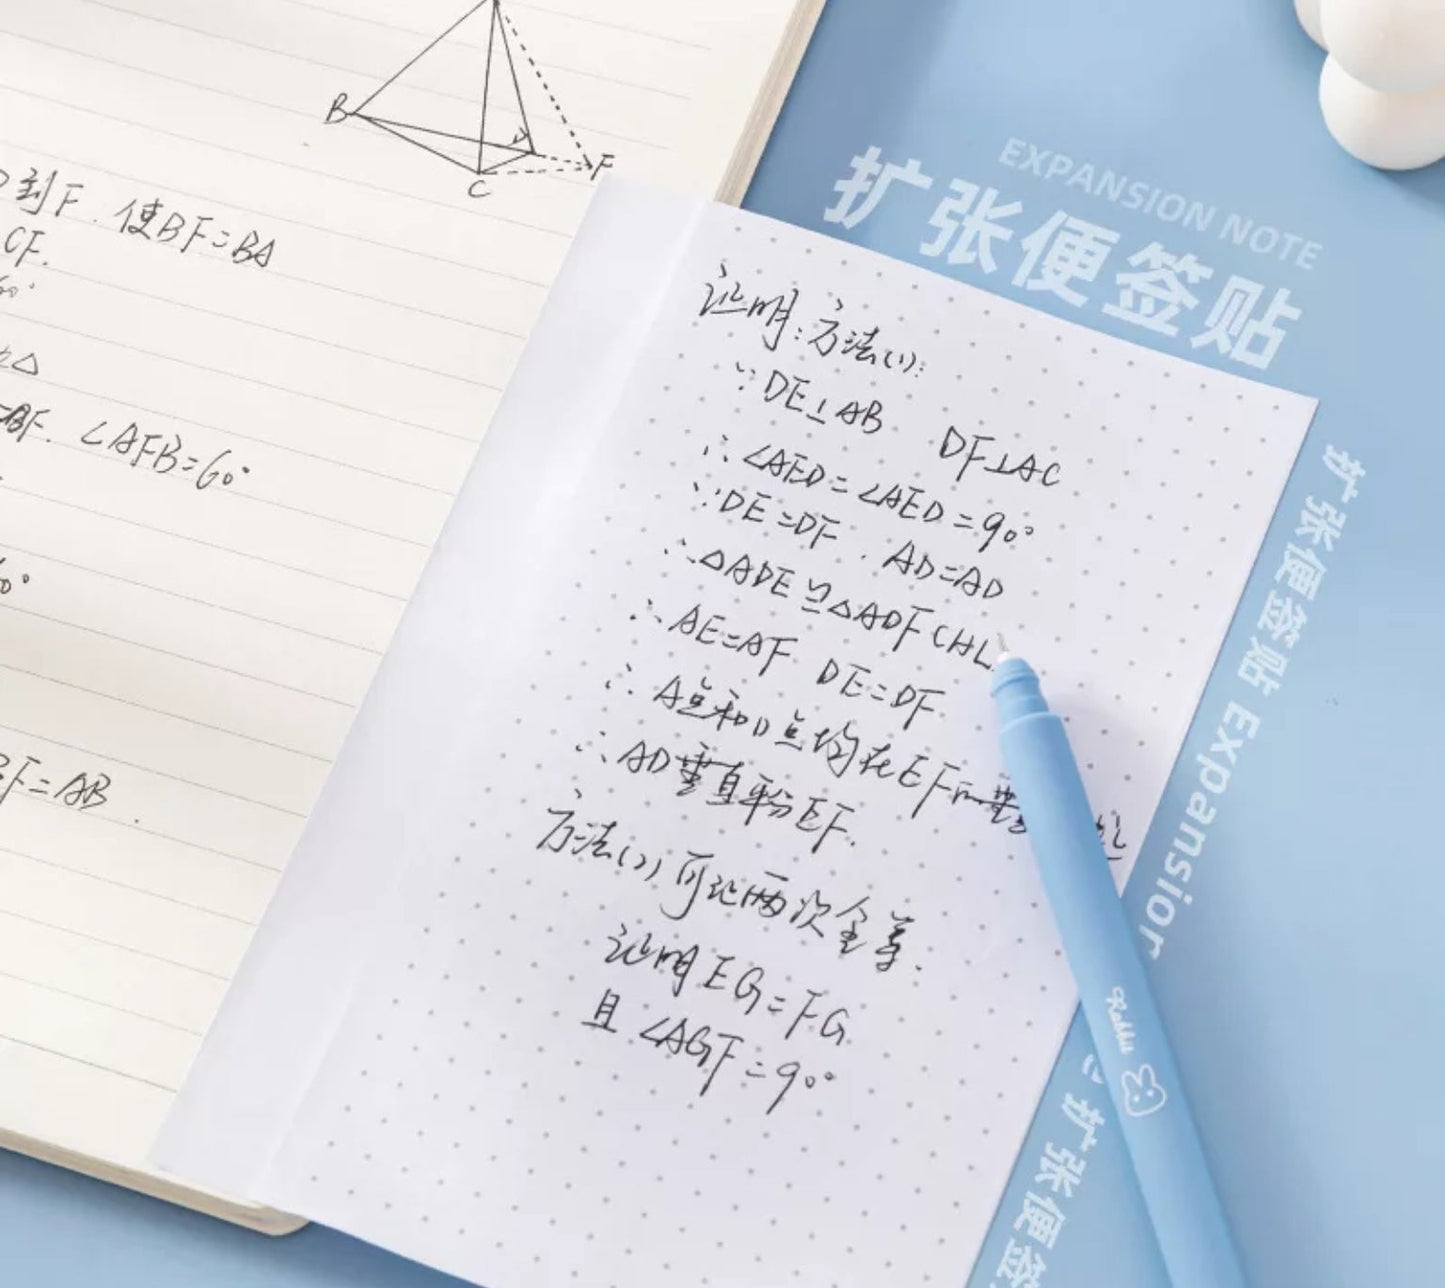 B
C
F
到F.使BF=BA
CF.
60°
△
=BF. ∠AFB=60°
60°
F=AB
EXPANSION NOTE
扩张便签贴
证明:方法(1):
∵DE⊥AB DF⊥AC
∴∠AED=∠AED=90°
∵DE=DF. AD=AD
∴△ADE≌△ADF(HL
∴AE=AF DE=DF
∴A点和D点均在EF的垂
∴AD垂直平分EF.
方法(2)可证两次全等.
证明EG=FG
且∠AGF=90°
扩张便签贴 Expansion
Rabbit
扩张便签